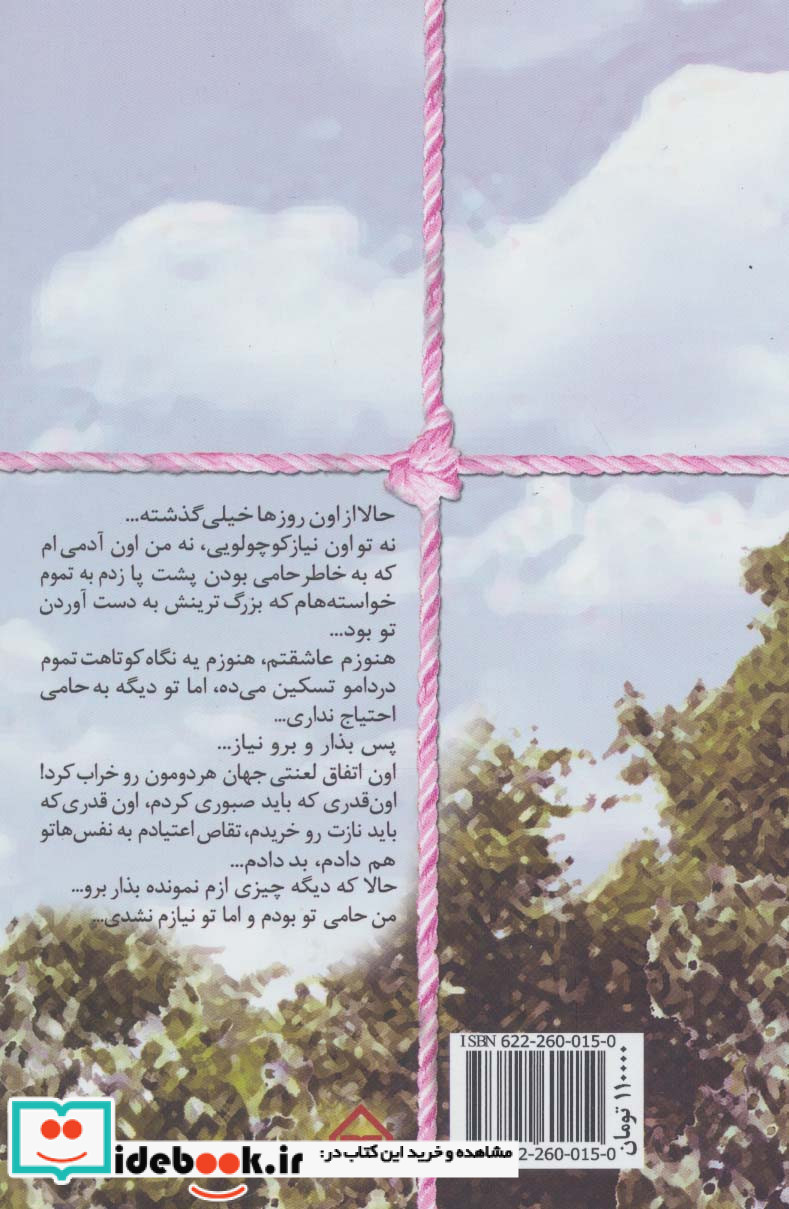 حالا از اون روزها خیلی گذشته...
نه تو اون نیاز کوچولویی، نه من اون آدمی ام
که به خاطر حامی بودن پشت پا زدم به تموم
خواسته‌هام که بزرگ ترینش به دست آوردن
تو بود...
هنوزم عاشقتم، هنوزم یه نگاه کوتاهت تموم
دردامو تسکین می‌ده، اما تو دیگه به حامی
احتیاج نداری...
پس بذار و برو نیاز...
اون اتفاق لعنتی جهان هردومون رو خراب کرد!
اون‌قدری که باید صبوری کردم، اون قدری که
باید نازت رو خریدم، تقاص اعتیادم به نفس‌هاتو
هم دادم، بد دادم...
حالا که دیگه چیزی ازم نمونده بذار برو...
من حامی تو بودم و اما تو نیازم نشدی...
ISBN 622-260-015-0
۱۱۰۰۰۰ تومان
22-260-015-0
مشاهده و خرید این کتاب در:
idebook.ir